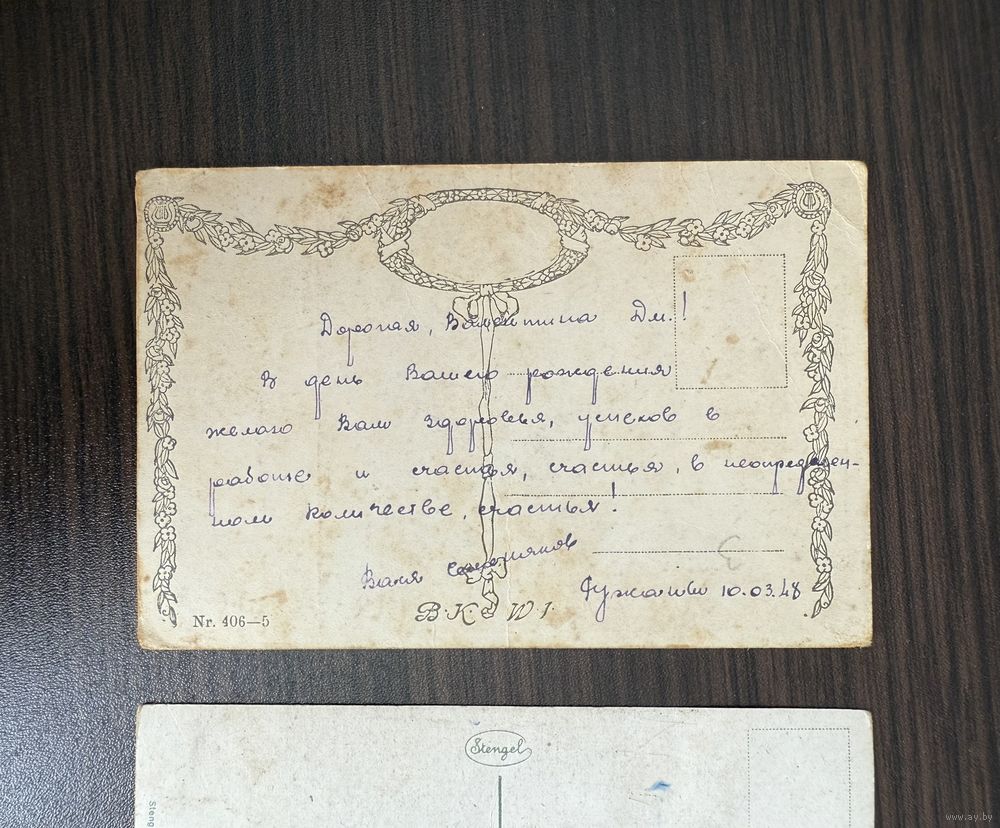 Дорогая, Валентина Дм.!
В день Вашего рождения
желаю Вам здоровья, успехов в
работе и счастья, счастья, в неопределен-
ном количестве, счастья!
Ваня
10.03.48
Nr. 406—5
B.K. W I.
Stengel
Steng
www.ay.by